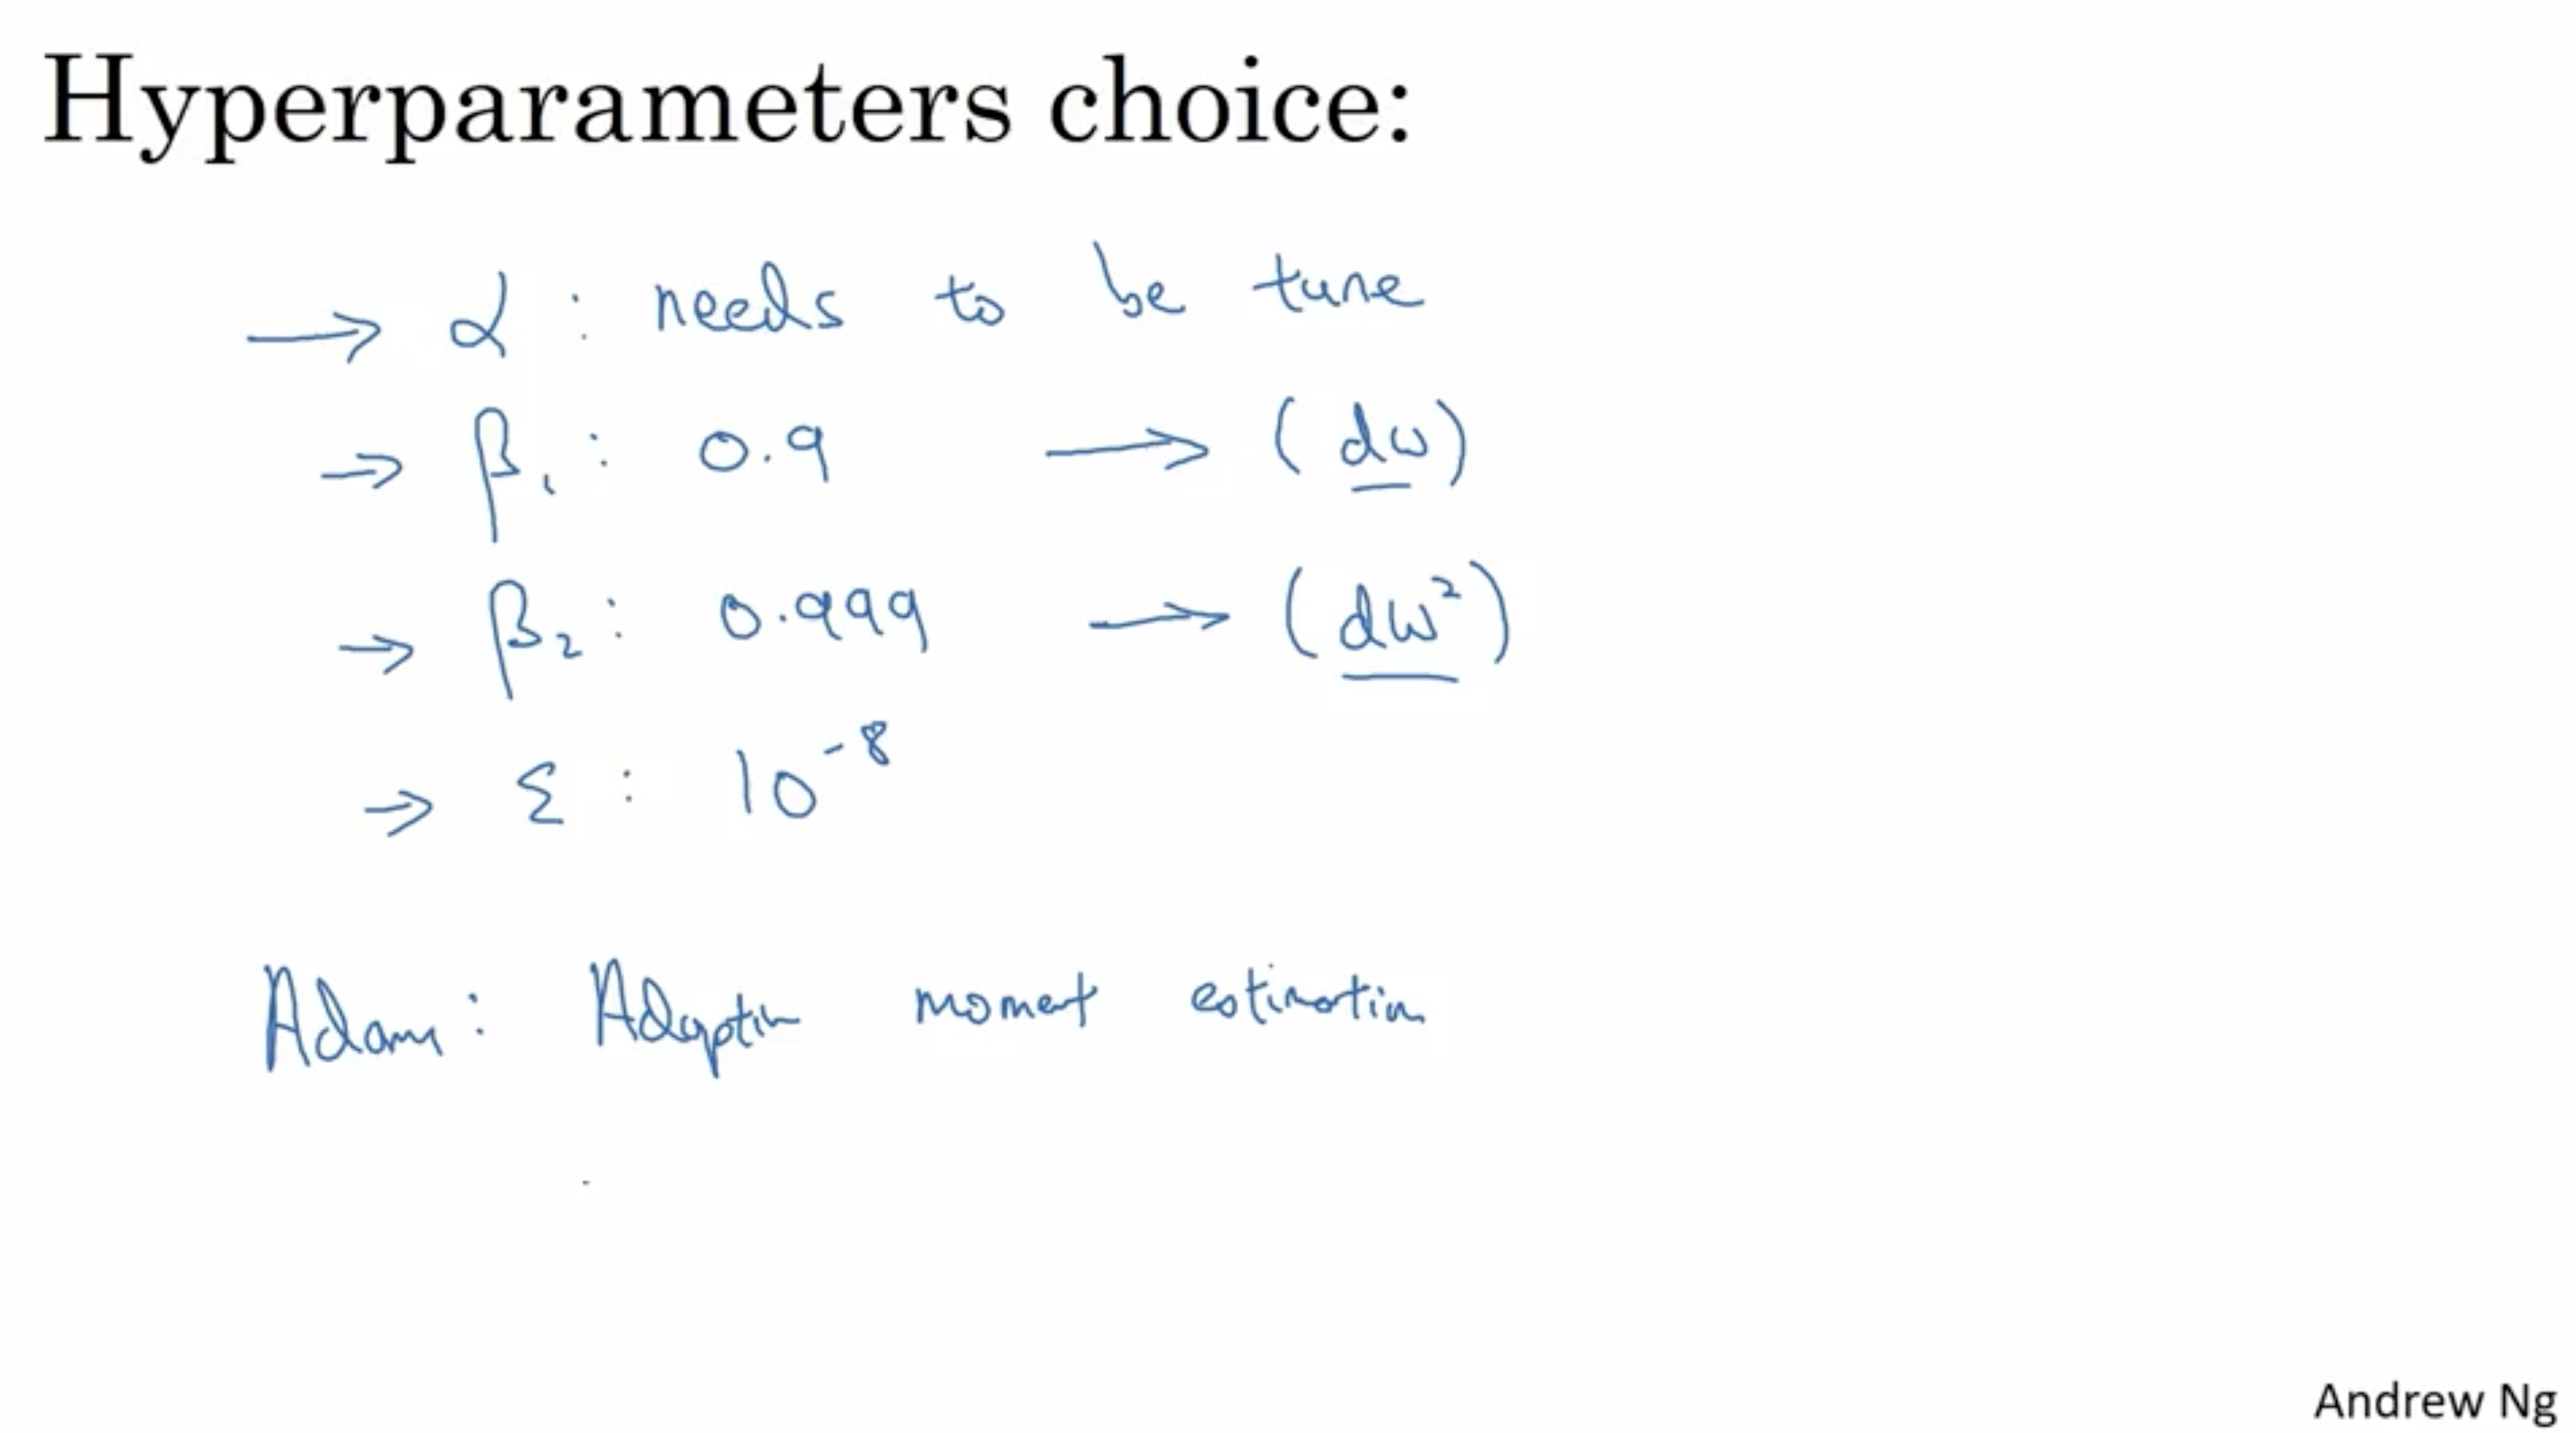 Hyperparameters choice:
→ α : needs to be tune
→ β₁ : 0.9 → (dw)
→ β₂ : 0.999 → (dw²)
→ ε : 10⁻⁸
Adam: Adaptiv moment estimation
Andrew Ng